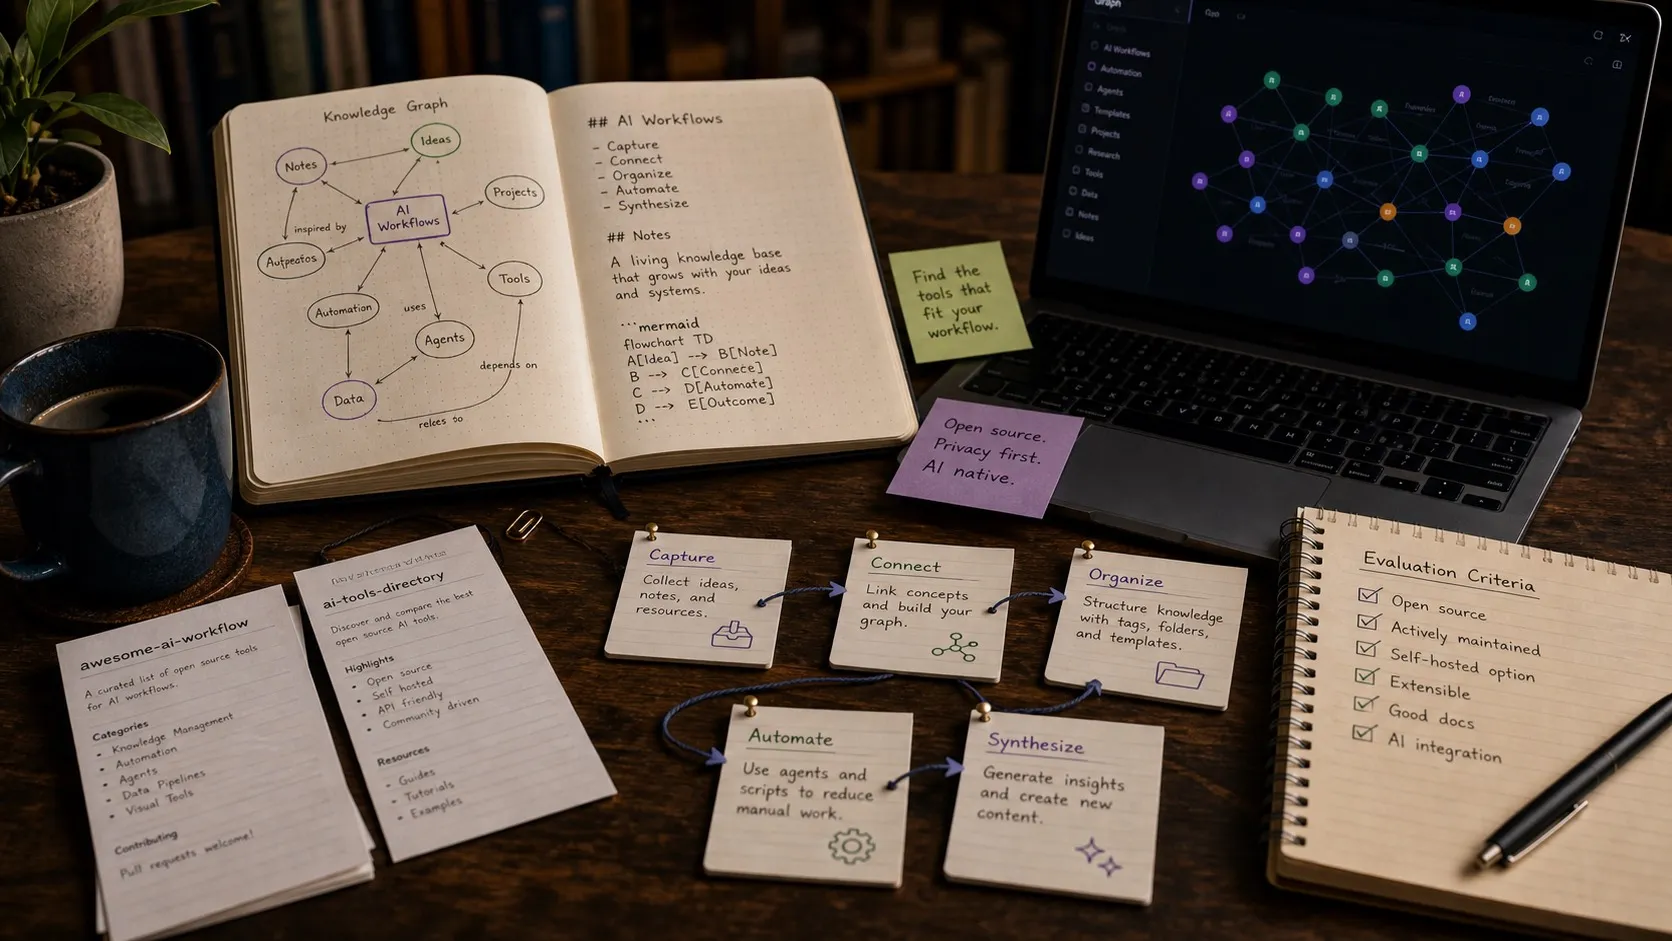 Knowledge Graph
Ideas
Notes
Projects
AI
Workflows
inspired by
Autpeatos
Tools
Automation
uses
Agents
depends on
Data
relces so
## AI Workflows
- Capture
- Connect
- Organize
- Automate
- Synthesize
## Notes
A living knowledge base
that grows with your ideas
and systems.
```mermaid
flowchart TD
A[Idea] --> B[Note]
B --> C[Connece]
C --> D[Automate]
D --> E[Outcome]
...
Find the
tools that
fit your
workflow.
Open source.
Privacy first.
AI native.
Graph
AI Workflows
Automation
Agents
Templates
Projects
Research
Tools
Data
Notes
Ideas
awesome-ai-workflow
A curated list of open source tools
for AI workflows.
Categories
• Knowledge Management
• Automation
• Agents
• Data Pipelines
• Visual Tools
Contributing
Pull requests welcome!
ai-tools-directory
Discover and compare the best
open source AI tools.
Highlights
• Open source
• Self hosted
• API friendly
• Community driven
Resources
• Guides
• Tutorials
• Examples
Capture
Collect ideas,
notes, and
resources.
Connect
Link concepts
and build your
graph.
Organize
Structure knowledge
with tags, folders,
and templates.
Automate
Use agents and
scripts to reduce
manual work.
Synthesize
Generate insights
and create new
content.
Evaluation Criteria
Open source
Actively maintained
Self-hosted option
Extensible
Good docs
AI integration